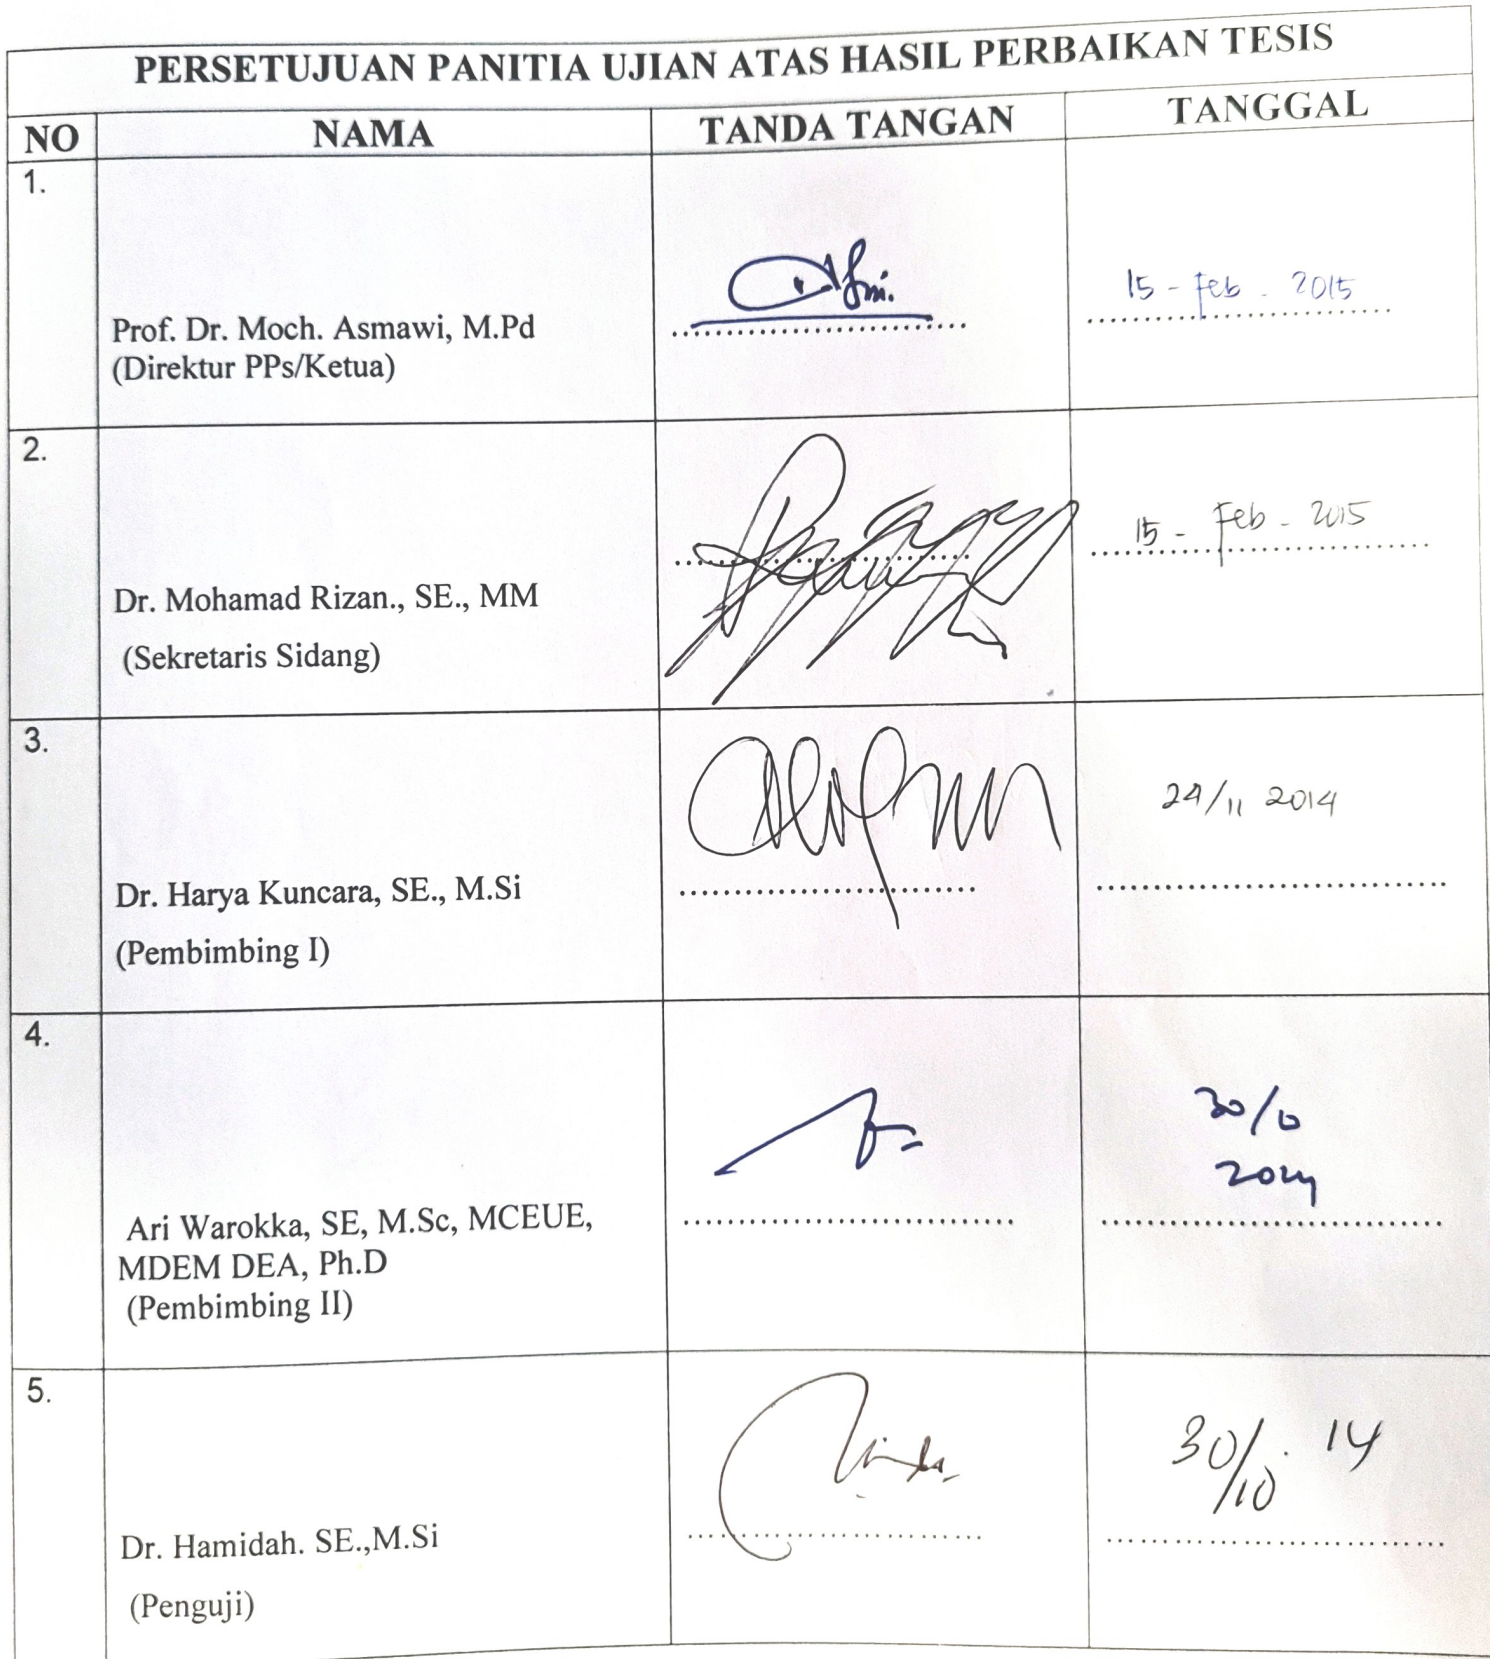 PERSETUJUAN PANITIA UJIAN ATAS HASIL PERBAIKAN TESIS
NO NAMA TANDA TANGAN TANGGAL
1.
15 - Feb - 2015
Prof. Dr. Moch. Asmawi, M.Pd
(Direktur PPs/Ketua)
2.
15 - Feb - 2015
Dr. Mohamad Rizan., SE., MM
(Sekretaris Sidang)
3.
24/11 2014
Dr. Harya Kuncara, SE., M.Si
(Pembimbing I)
4.
30/10
2014
Ari Warokka, SE, M.Sc, MCEUE,
MDEM DEA, Ph.D
(Pembimbing II)
5.
30/10 . 14
Dr. Hamidah. SE.,M.Si
(Penguji)